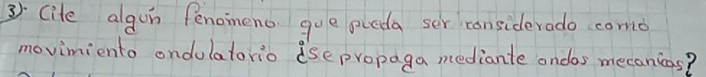 3). Cite algún fenomeno que pueda ser considerado como
movimiento ondulatorio ¿se propaga mediante ondas mecanicas?